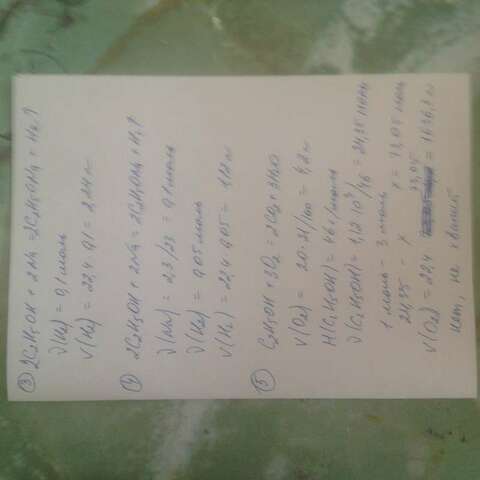 ③ 2C₂H₅OH + 2Na = 2C₂H₅ONa + H₂↑
ν(H₂) = 0,1 моль
V(H₂) = 22,4 · 0,1 = 2,24 л
④ 2C₂H₅OH + 2Na = 2C₂H₅ONa + H₂↑
ν(Na) = 2,3/23 = 0,1 моль
ν(H₂) = 0,05 моль
V(H₂) = 22,4 · 0,05 = 1,12 л
⑤
C₂H₅OH + 3O₂ = 2CO₂ + 3H₂O
V(O₂) = 20 · 21/100 = 4,2 л
M(C₂H₅OH) = 46 г/моль
ν(C₂H₅OH) = 1,12 · 10³/46 = 24,35 моль
1 моль - 3 моль
24,35 - x x = 73,05 моль
V(O₂) = 22,4 73,05 = 1636,3 л
Нет, не хватит